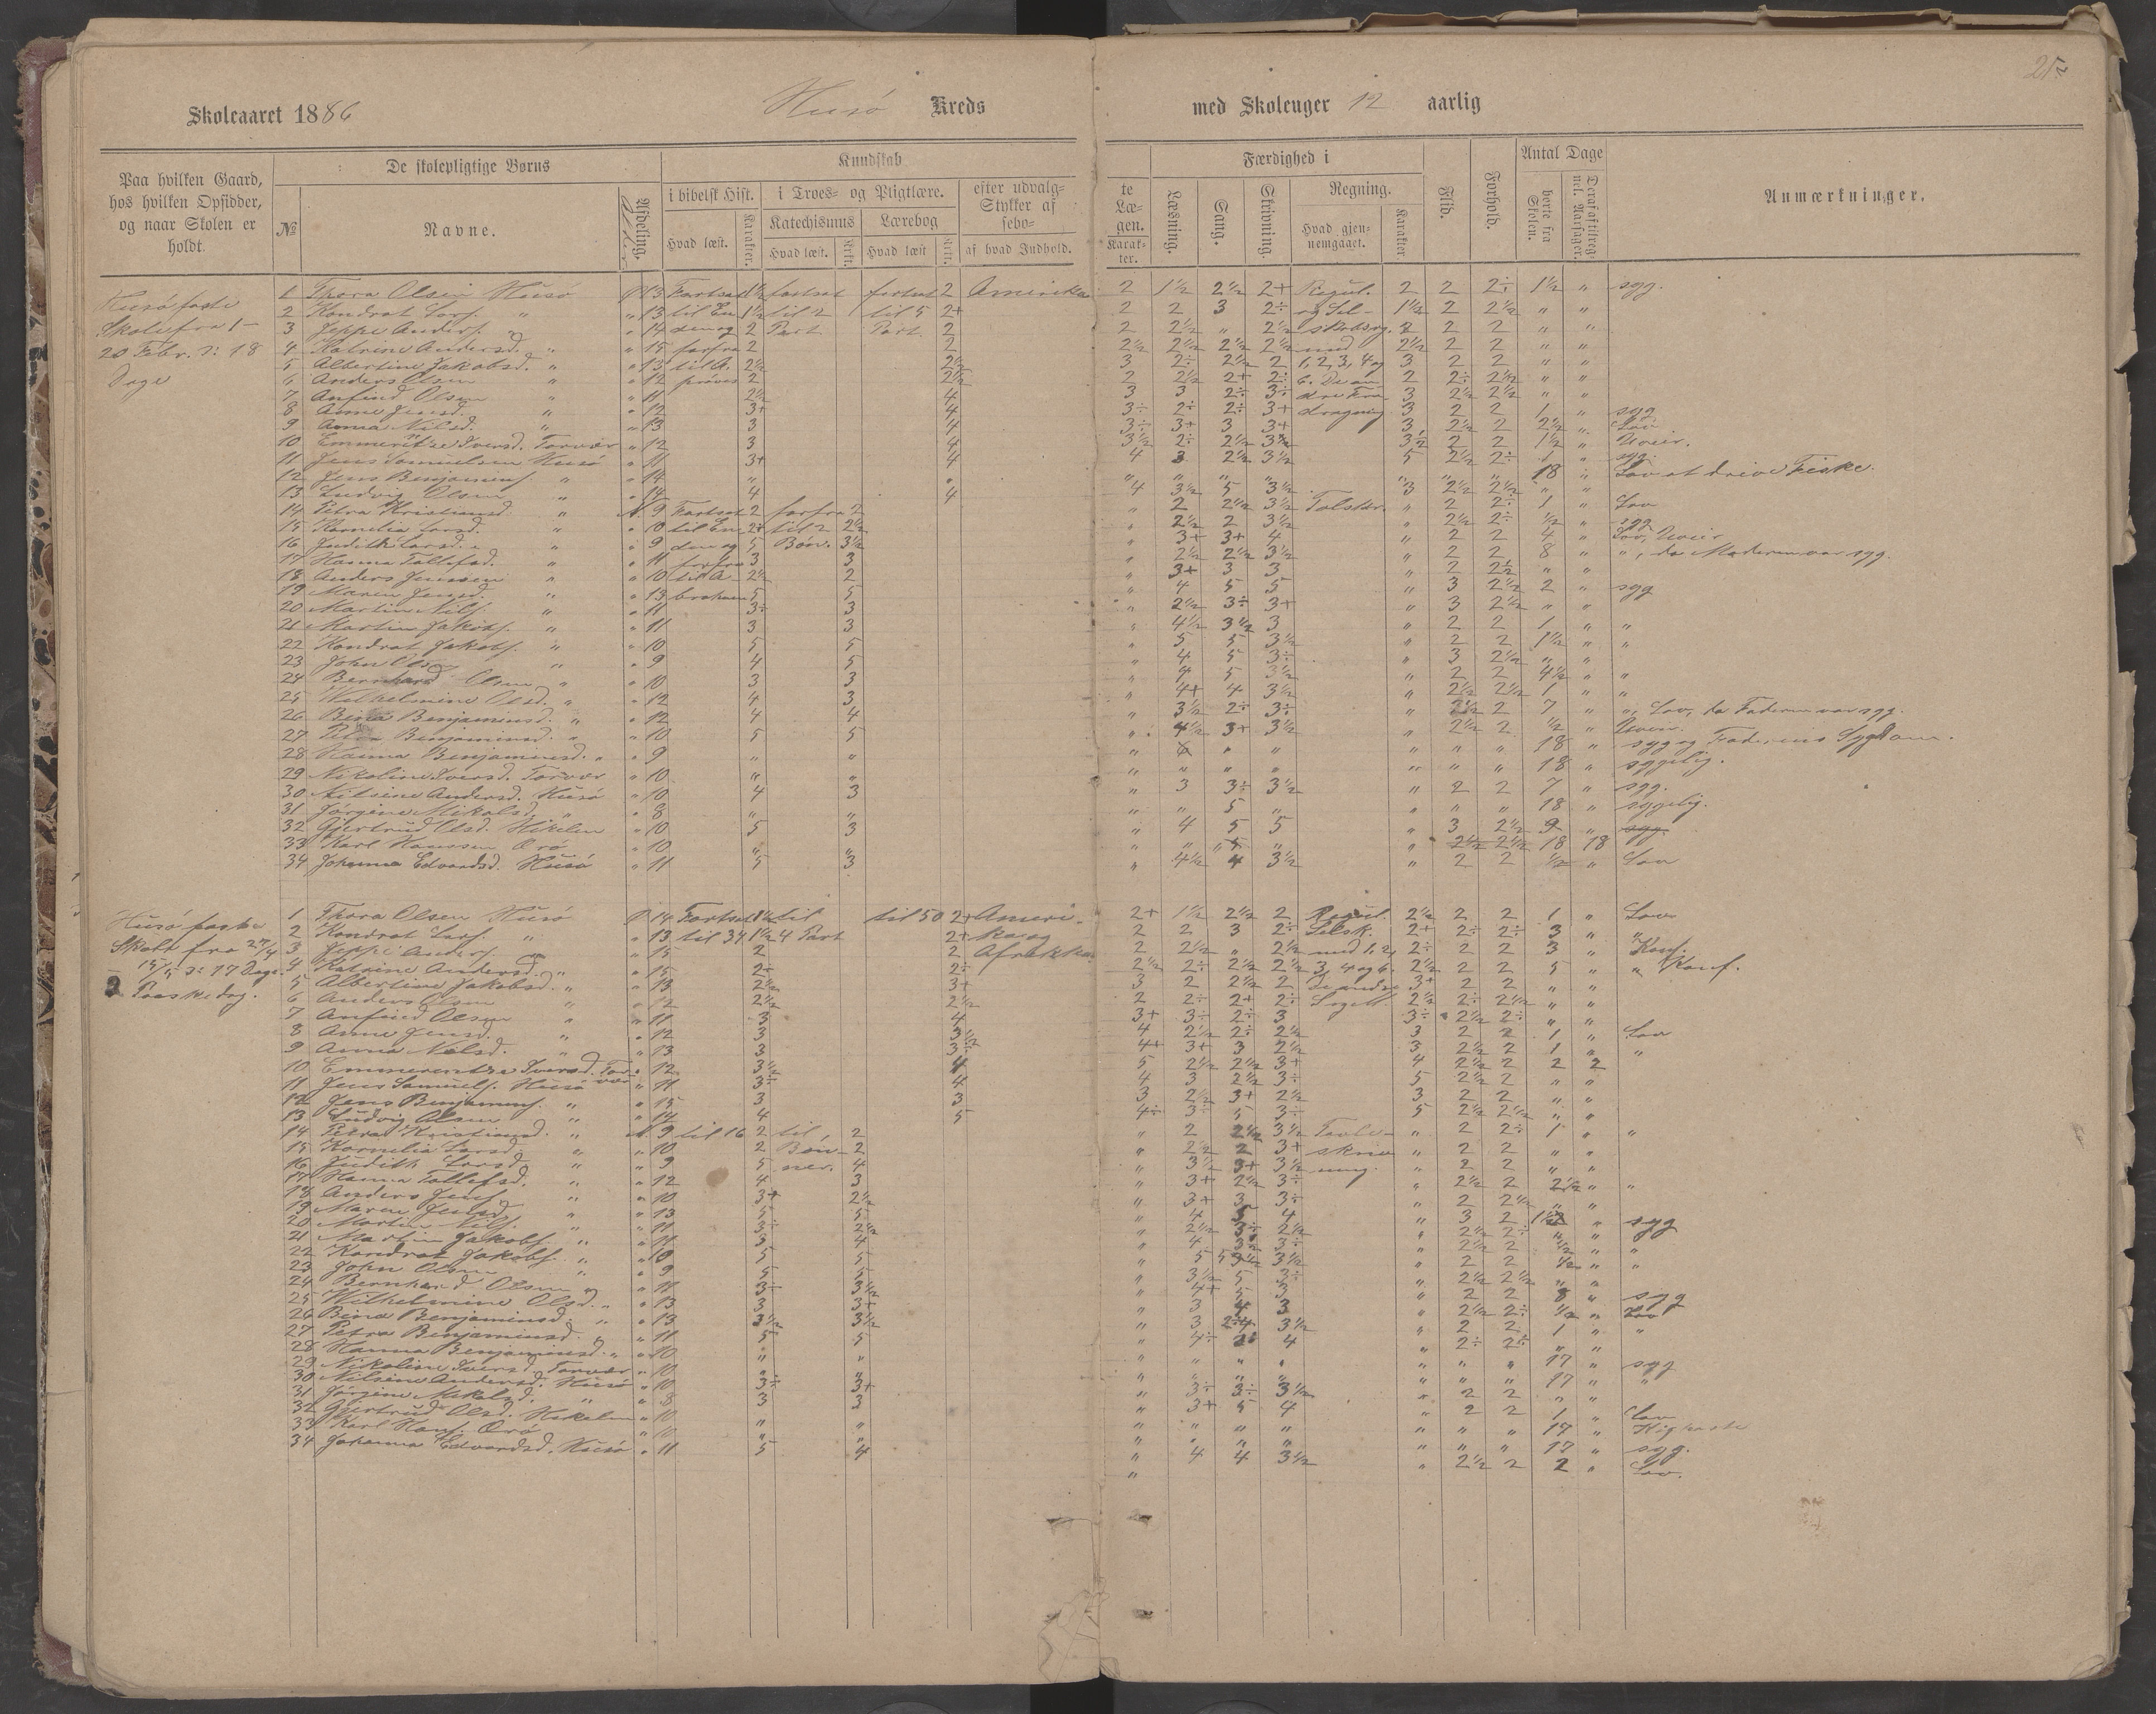 25
Skoleaaret 1886 Husö Kreds med Skoleuger 12 aarlig
Paa hvilken Gaard, hos hvilken Opsidder, og naar Skolen er holdt.
De skolepligtige Børns
№
Navne.
Afdeling.
Alder
Kundskab
i bibelsk Hist.
Hvad læst.
Karakter.
i Troes- og Pligtlære.
Katechismus
Hvad læst.
Krkt.
Lærebog
Hvad læst
Krkt.
efter udvalg-
Stykker af
sebo-
af hvad Indhold.
te
Læ-
gen.
Karak-
ter.
Færdighed i
Læsning.
Sang.
Skrivning.
Regning.
Hvad gjen-
nemgaaet.
Karakter
Flid.
Forhold.
Antal Dage
borte fra
Skolen.
Deraf af tilreg-
nel. Aarsager.
Anmærkninger.
Husö faste
Skole fra 1-
20 Febr. ɔ: 18
Dage
1 Thora Olsen Husö 13 Fortsat 1½ fortsat fortsat 2 Amerika 2 1½ 2½ 2+ Regul. 2 2 2÷ 1½ „ syg.
2 Kondrat Lars. „ „ 13 til En 1½ til 2 til 5 2+ 2 2 3 2÷ og Sel- 1½ 2 2½ „ „
3 Jeppe Anders. „ „ 14 den og 2 Part Part. 2 2 2½ „ 2½ skabsrg. 2 2 2 „ „
4 Katrine Andersd. „ „ 15 forfra 2 2 2½ 2½ 2½ 2½ med 2½ 2 2 „ „
5 Albertine Jakobsd. „ „ 13 til A. 2½ 2½ 3 2÷ 2½ 2 1, 2, 3, 4 og 3 2 2 „ „
6 Anders Olsen „ „ 12 prøves 2 2½ 2 2½ 2+ 2÷ 6. De an- 2 2÷ 2½ „ „
7 Anfind Olsen „ „ 11 2½ 4 3 3 2÷ 3÷ dre Fra- 3 2½ 2½ „ „
8 Anne Jensd. „ „ 12 3+ 4 3÷ 2÷ 2÷ 3+ dragning 3 2 2 1 „ syg
9 Anna Nilsd. „ „ 13 3 4 3÷ 3+ 3 3+ 3 2½ 2 2½ „ Lov
10 Emmeritze Iversd. Torvær „ 12 3 4 3½ 2÷ 2½ 3½ 3½ 2 2 1½ „ Uveir.
11 Jens Samuelsen Husö „ 11 3+ 4 4 3 2½ 3½ 5 2½ 2÷ 1 „ syg.
12 Jens Benjamins. „ „ 14 „ „ „ „ „ „ „ „ „ 18 „ Lov at drive Fiske.
13 Ludvig Olsen „ „ 14 4 4 4 3½ 5 3½ 3 2½ 2½ „ „
14 Petra Kristiansd. „ N. 9 Fortsat 2 forfra 2 „ 2 2½ 3½ Talskr. „ 2 2÷ 1 „ Lov
15 Kornelia Larsd. „ „ 10 til En 2+ til 2 2½ „ 2½ 2 3½ „ 2½ 2÷ ½ „ syg
16 Judith Larsd. „ „ 9 den og 5 Bøn. 3½ „ 3+ 3+ 4 „ 2 2 4 „ Lov, Uveir
17 Hanna Tollefsd. „ „ 11 forfra 3 3 „ 2½ 2½ 3½ „ 2 2 8 „ „, da Moderen var syg.
18 Anders Jenssen „ „ 10 til A- 2½ 2 „ 3+ 3 3 „ 2 2½ „ „
19 Maren Jensd. „ „ 13 braham 5 5 „ 4 5 5 „ 3 2½ 2 „ syg
20 Martin Nils. „ „ 11 3÷ 3 „ 2½ 3÷ 3+ „ 3 2½ „ „
21 Martin Jakobs. „ „ 11 3 3 „ 4½ 3½ 3 „ 2 2 1 „ „
22 Kondrat Jakobs. „ „ 10 5 5 „ 5 5 3½ „ 2 2 1½ „ „
23 John Olsen „ „ 9 4 5 „ 4 5 3÷ „ 3 2½ „ „
24 Bernhard Olsen „ „ 10 3 3 „ 4 5 3½ „ 2 2 4½ „ „
25 Wilhelmine Olsd. „ „ 12 4 3 „ 4+ 4 3½ „ 2½ 2½ 1 „ „
26 Bina Benjaminsd. „ „ 12 4 4 „ 3½ 2÷ 3÷ „ 2½ 2 7 „ „, Lov, da Faderen var syg.
27 Petra Benjaminsd. „ „ 10 5 5 „ 4½ 3+ 3½ „ 2½ 2 ½ „ Uveir.
28 Hanna Benjaminsd. „ „ 9 „ „ „ „ „ „ „ „ 18 „ syg og Faderens Sygdom.
29 Nikoline Iversd. Torvær „ 10 „ „ „ „ „ „ „ „ „ 18 „ sygelig.
30 Nilsine Andersd. Husö „ 10 4 3 „ 3 3÷ 3½ „ 2 2 7 „ syg.
31 Jørgine Mikalsd. „ „ 8 „ „ „ „ 5 „ „ „ 18 „ sygelig.
32 Gjertrud Olsd. Hikelen „ 10 5 3 „ 4 5 5 „ 3 2½ 9 „ syg.
33 Karl Hanssen Orö „ 10 „ „ „ „ „ „ 2½ 2½ 18 18
34 Johanna Edvardsd. Husö „ 11 5 3 „ 4½ 4 3½ „ 2 2 ½ „ Lov
Husö faste
Skole fra 27/4
– 15/5 ɔ: 17 Dage.
2 Paaskedag.
1 Thora Olsen Husö 14 Fortsat 1½ til til 50 2+ Ameri- 2+ 1½ 2½ 2 Regul. 2½ 2 2 1 „ Lov
2 Kondrat Lars. „ „ 13 til 34 1½ 4 Part 2+ ka og 2 2 3 2÷ Selsk. 2+ 2÷ 2÷ 3 „ „
3 Jeppe Anders. „ „ 15 2 2 Afrikka 2 2½ „ 2½ med 1, 2, 2÷ 2 2 3 „ Konf.
4 Katrine Andersd. „ „ 15 2÷ 2÷ 2½ 2÷ 2½ 2½ 3, 4 og 6. 2½ 2 2 5 „ „ Konf.
5 Albertine Jakobsd. „ „ 13 2½ 3+ 3 2 2½ 2 De andre 3+ 2 2 „ „
6 Anders Olsen „ „ 12 2½ 2½ 2 2÷ 2+ 2÷ 2½ 2÷ 2½ „ „
7 Anfind Olsen „ „ 11 3 4 3+ 3÷ 2÷ 3 3÷ 2½ 2÷ „ „
8 Anne Jensd. „ „ 12 3 3½ 4 2½ 2÷ 2½ 3 2 2 1 „ Lov
9 Anna Nilsd. „ „ 13 3 3÷ 4+ 3+ 3 2½ 3 2½ 2 1 „ „
10 Emmerentze Iversd. Torvær „ 12 3½ 4 5 2½ 2½ 3+ 4 2½ 2 2 2
11 Jens Samuels. Husö „ 11 3÷ 4 4 3 2½ 3÷ 5 2½ 2 „ „
12 Jens Benjamins. „ „ 15 3 3 3 2½ 3+ 2½ 3 2 2 „ „
13 Ludvig Olsen „ „ 14 4 5 4÷ 3÷ 5 3÷ 5 2½ 2½ „ „
14 Petra Kristiansd. „ N. 9 til 16 2 til 2 „ 2 2½ 3½ Tavle- „ 2 2÷ 1 „ „
15 Kornelia Larsd. „ „ 10 2 Bøn- 2 „ 2½ 2 3+ skriv- „ 2 2 „ „
16 Judith Larsd. „ „ 9 5 ner. 4 „ 3½ 3+ 3½ ning. „ 2 2 „ „
17 Hanna Tollefsd. „ „ 12 4 3 „ 3+ 2½ 3÷ „ 2½ 2 2½ „ „
18 Anders Jens. „ „ 10 3+ 2½ „ 3+ 3 3÷ „ 2 2½ „ „
19 Maren Jensd. „ „ 13 5 5 „ 4 5 4 „ 3 2 „ syg
20 Martin Nils. „ „ 11 3÷ 2½ „ 2½ 3÷ 2½ „ 2½ 2÷ „ „
21 Martin Jakobs. „ „ 11 3 4 „ 4 3÷ 3÷ „ 2½ 2 ½ „ „
22 Kondrat Jakobs. „ „ 10 5 5 „ 5 3½ „ 2 2 ½ „ „
23 John Olsen „ „ 9 5 5 „ 3½ 5 3÷ „ 2½ 2½ „ „
24 Bernhard Olsen „ „ 11 3÷ 3½ „ 4+ 5 3 „ 2 2 8 „ syg
25 Wilhelmine Olsd. „ „ 13 3 3+ „ 3 4 3 „ 2½ 2÷ ½ „ Lov
26 Bina Benjaminsd. „ „ 13 3½ 3½ „ 3 3½ „ 2 2 1 „ „
27 Petra Benjaminsd. „ „ 11 5 5 „ 4÷ 4 „ 2÷ 2÷ „ „
28 Hanna Benjaminsd. „ „ 10 „ „ „ „ „ „ „ „ „ 17 „ syg
29 Nikoline Iversd. Torvær „ 10 „ „ „ „ „ „ „ „ „ 17 „ „
30 Nilsine Andersd. Husö „ 10 3÷ 3+ „ 3÷ 3÷ 3½ „ 2 2 „ „
31 Jørgine Mikalsd. „ „ 8 3 3 „ 3+ 5 4 „ 2 2 1 „ Lov
32 Gjertrud Olsd. Hikelen „ 10 „ „ „ „ „ „ „ „ „ 17 „
33 Karl Hans. Orö „ 10 „ „ „ „ „ „ „ „ „ 17 „ syg.
34 Johanna Edvardsd. Husö „ 11 5 4 „ 4 4 3½ „ 2½ 2 2 „ Lov.